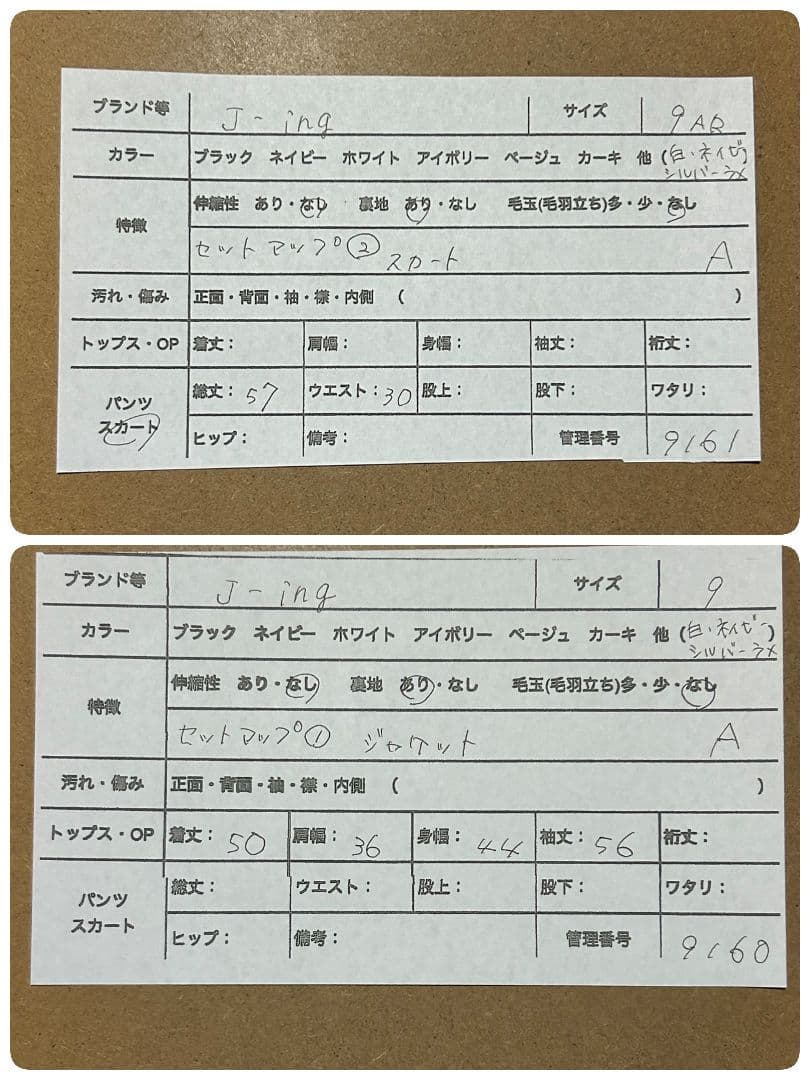 ブランド等 J-ing サイズ 9AR
カラー ブラック ネイビー ホワイト アイボリー ベージュ カーキ 他 (白、ネイビー)
シルバーラメ
特徴 伸縮性 あり・なし 裏地 あり・なし 毛玉(毛羽立ち)多・少・なし
セットアップ② スカート A
汚れ・傷み 正面・背面・袖・襟・内側 ( )
トップス・OP 着丈: 肩幅: 身幅: 袖丈: 裄丈:
パンツ スカート 総丈: 57 ウエスト: 30 股上: 股下: ワタリ:
ヒップ: 備考: 管理番号 9161
ブランド等 J-ing サイズ 9
カラー ブラック ネイビー ホワイト アイボリー ベージュ カーキ 他 (白、ネイビー)
シルバーラメ
特徴 伸縮性 あり・なし 裏地 あり・なし 毛玉(毛羽立ち)多・少・なし
セットアップ① ジャケット A
汚れ・傷み 正面・背面・袖・襟・内側 ( )
トップス・OP 着丈: 50 肩幅: 36 身幅: 44 袖丈: 56 裄丈:
パンツ スカート 総丈: ウエスト: 股上: 股下: ワタリ:
ヒップ: 備考: 管理番号 9160